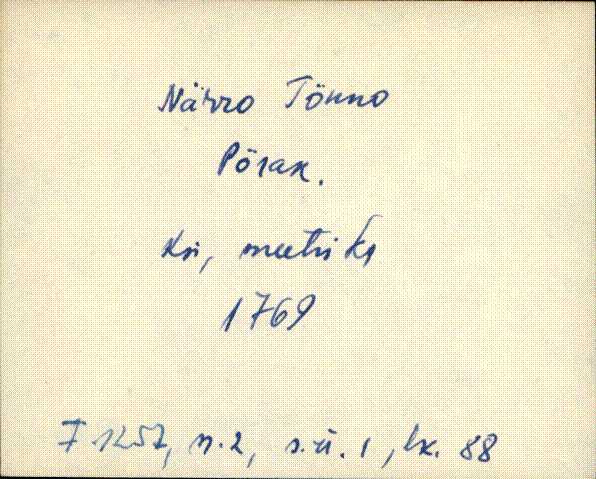 Närro Tönno
Põrak.
Ksi, meetriks
1769
F 1257, n. 2, s.ü. 1, lk. 88